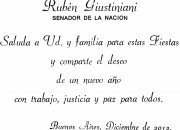 Rubén Giustiniani
SENADOR DE LA NACION
Saluda a Ud. y familia para estas Fiestas
y comparte el deseo
de un nuevo año
con trabajo, justicia y paz para todos.
Buenos Aires, Diciembre de